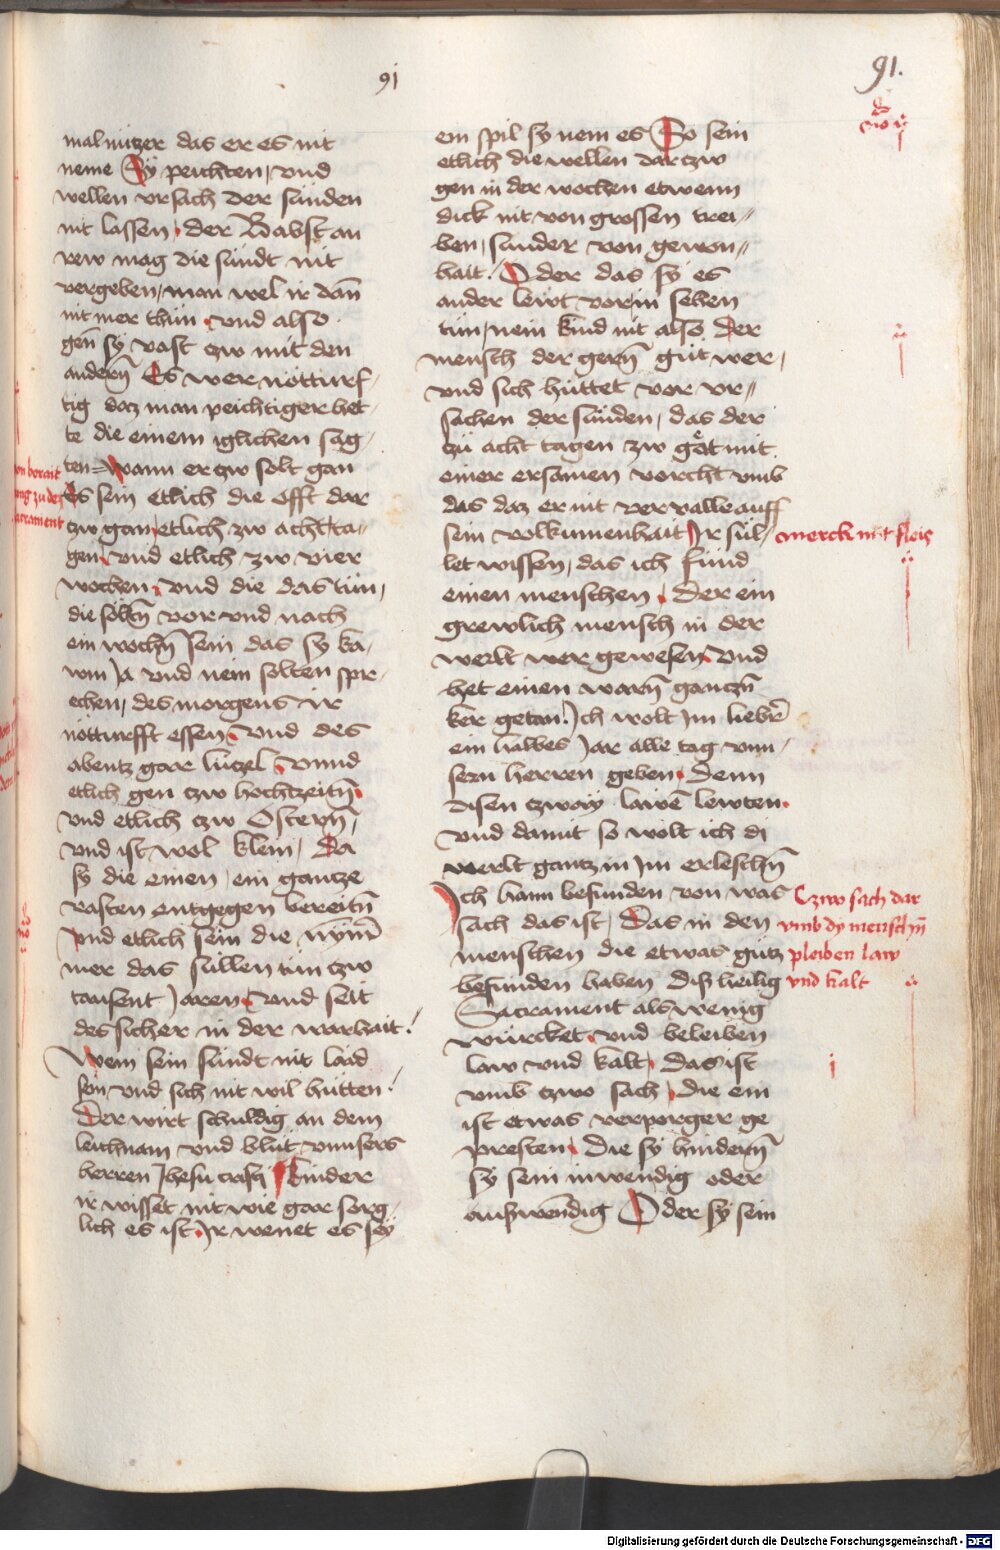 91
91.
malnützer das er es nit
neme Sy peichten, vnd
wellen vrsach der sünden
nit lassen, der Babst an
rew mag die sündt nit
vergeben, man wel ir dañ
nit mer thun. vnd also
geñ sy vast zw mit den
anderñ Es wer notturf„
tig daz man peichtiger het„
te die einem iglichen sag„
ten = wann er zw solt gan
Es sein etlich die offt dar
zw gan, etlich zw acht ta„
gen, vnd etlich zw vier
wochen, vnd die das tün,
die söltñ vor vnd nach
ein wochñ sein das sy ka„
wm Ja vnd nein solten spr„
echen, des morgens ir
notturfft essen, vnd des
abentz gar lützel, vnnd
etlich gen zw hochtzeitñ.
vnd etlich zw Osterñ,
vnd ist wol klein, Da
sy die einen, ein gantze
vasten entgegen bereitñ
vnd etlich sein die nym̄
mer das süllen tün zw
tausent Jaren, vnd seit
des sicher in der warhait.
Wem sein sündt nit laid
sein vnd sich nit wil hütten.
Der wirt schuldig an dem
leichnam vnd blüt vnnsers
herren Jhesu cristi Kinder
ir wisset nit wie gar sorg„
lich es ist. Jr wenet es sey
ein spil sy nem es So sein
etlich die wellen dar zw
gen in der wochen etwenn
dick nit von grossen trei„
ben, sunder von gewon„
hait. Oder das sy es
ander lewt vorm sehen
tün, nein kind nit also der
mensch der gerñ güt wer,
vnd sich hüttet vor vr„
sachen der sünden, das der
zü acht tagen zw got mit
einer ersamen vorcht vmb
das daz er nit vervalle auff
sein volkumenhait Jr sül„
let wissen, das ich fünd
einen menschen, Der ein
grewlich mensch in der
werlt wer gewesen vnd
het einen warñ gantzñ
ker getan. Jch wolt jm lieber
ein halbes Jar alle tag vnn„
sern herren geben, Denn
disen zway lawē lewten.
vnd damit so wolt ich di
werlt gantz in jm erleschñ
Jch hann befunden von was
sach das ist, Das in den
menschen die etwas gütz
befunden haben Diß heilig
Sacrament als wenig
würcket, vnd beleiben
law vnd kalt, Das ist
vmb zwo sach, die ein
ist etwas verporger ge
presten, Die sy hinderñ
sy sein inwendig oder
außwendig Oder sy sein
merck mit fleis
zwo sach dar
vmb dy menschñ
pleiben law
vnd kalt
Digitalisierung gefördert durch die Deutsche Forschungsgemeinschaft - DFG